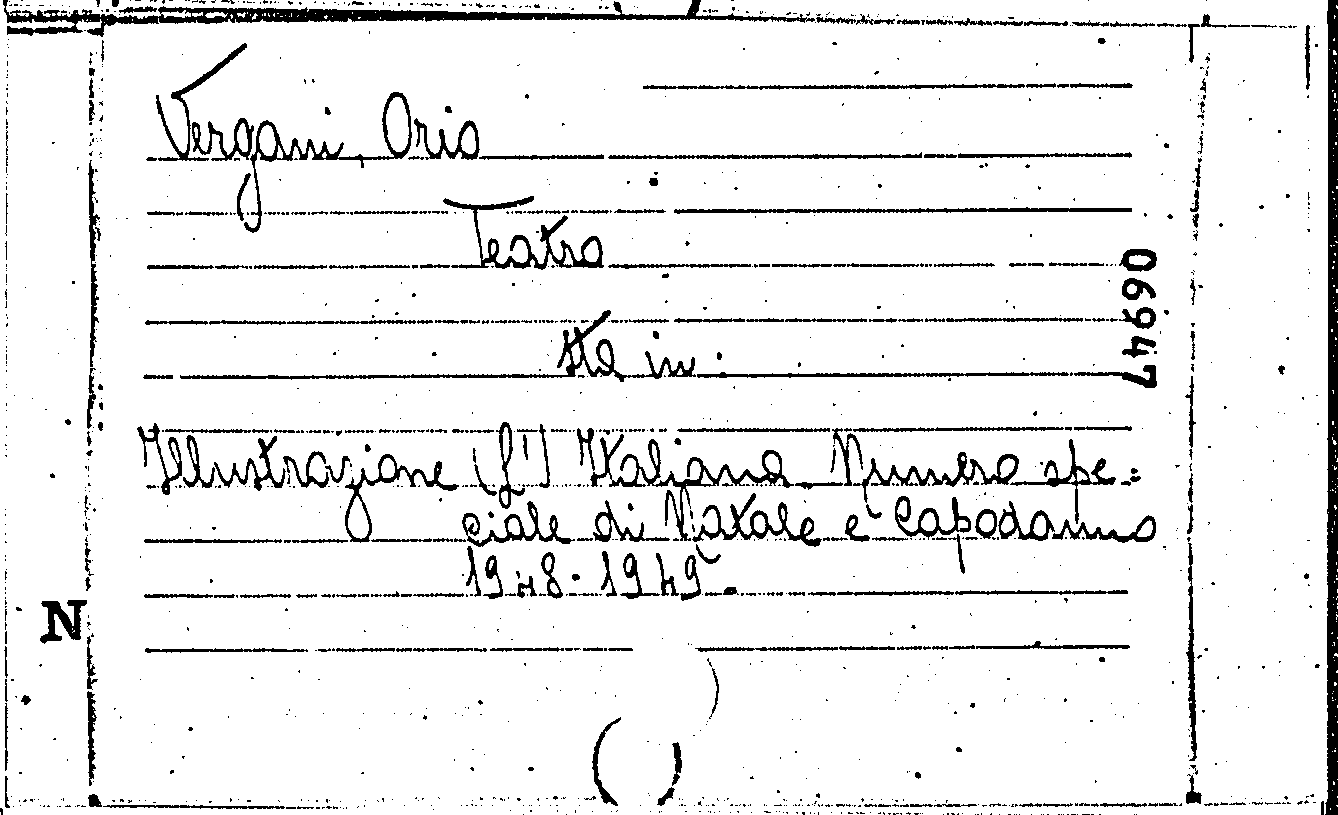 Vergani, Orio
Teatro
sta in:
Illustrazione (L') Italiana. Numero spe:
ciale di Natale e Capodanno
1948-1949.
06947
N